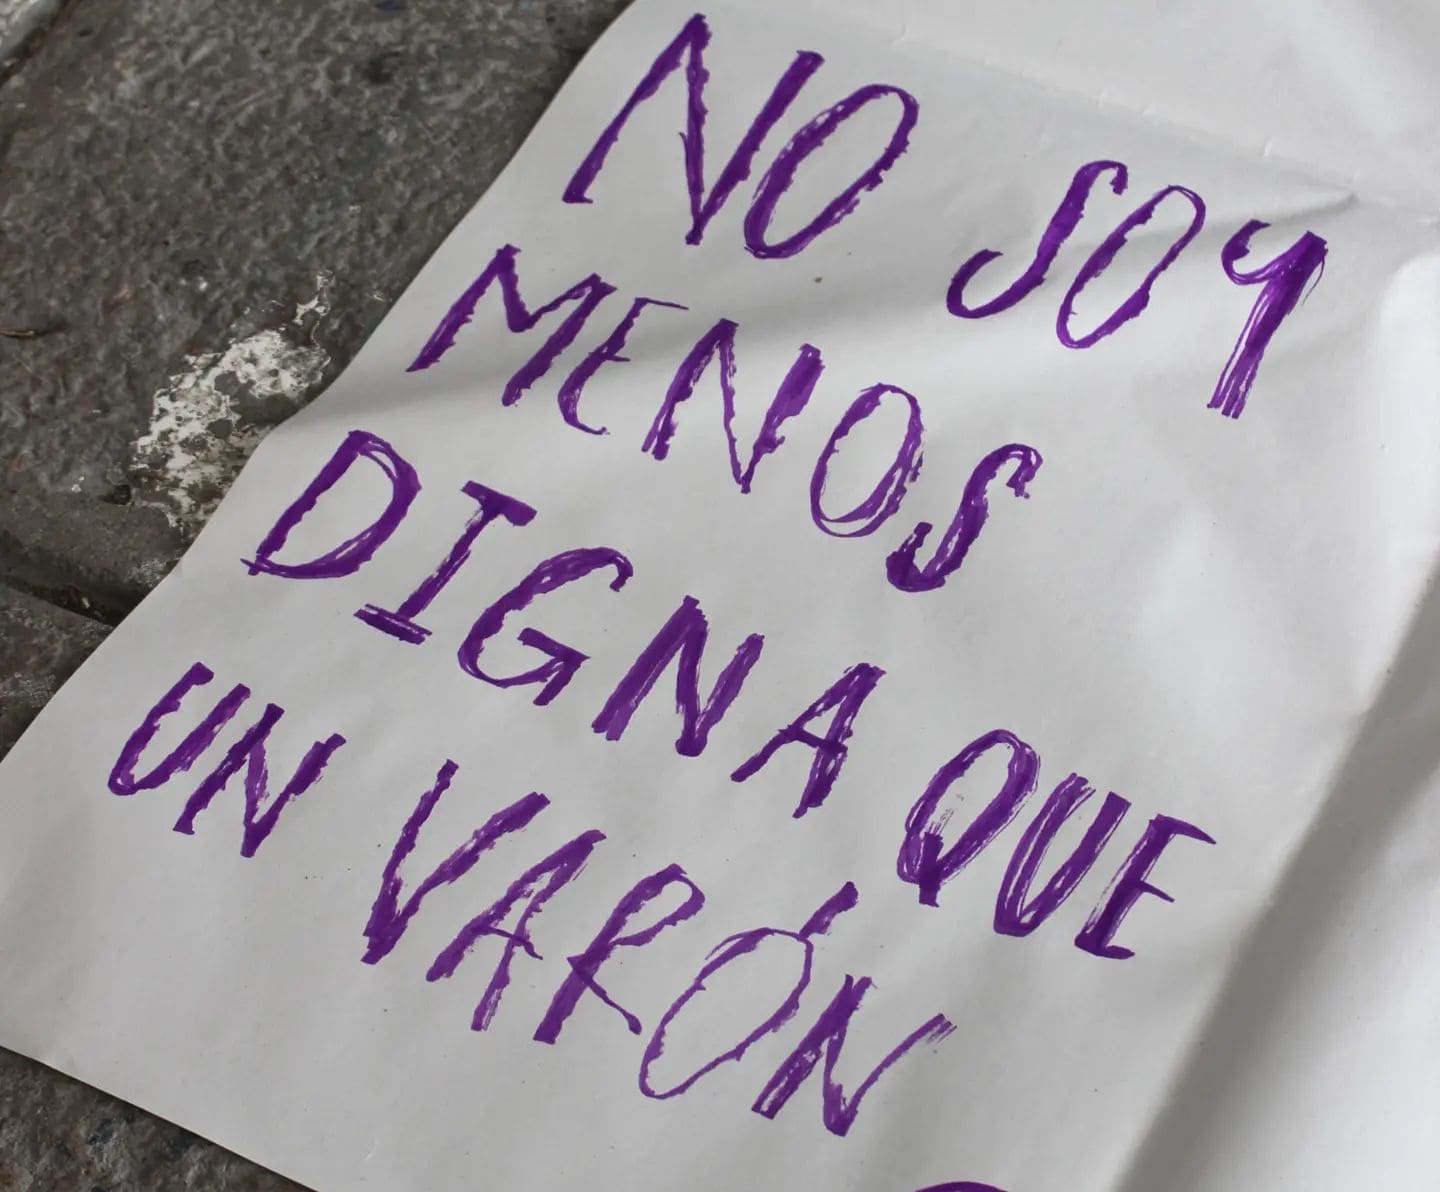 NO SOY
MENOS
DIGNA QUE
UN VARÓN